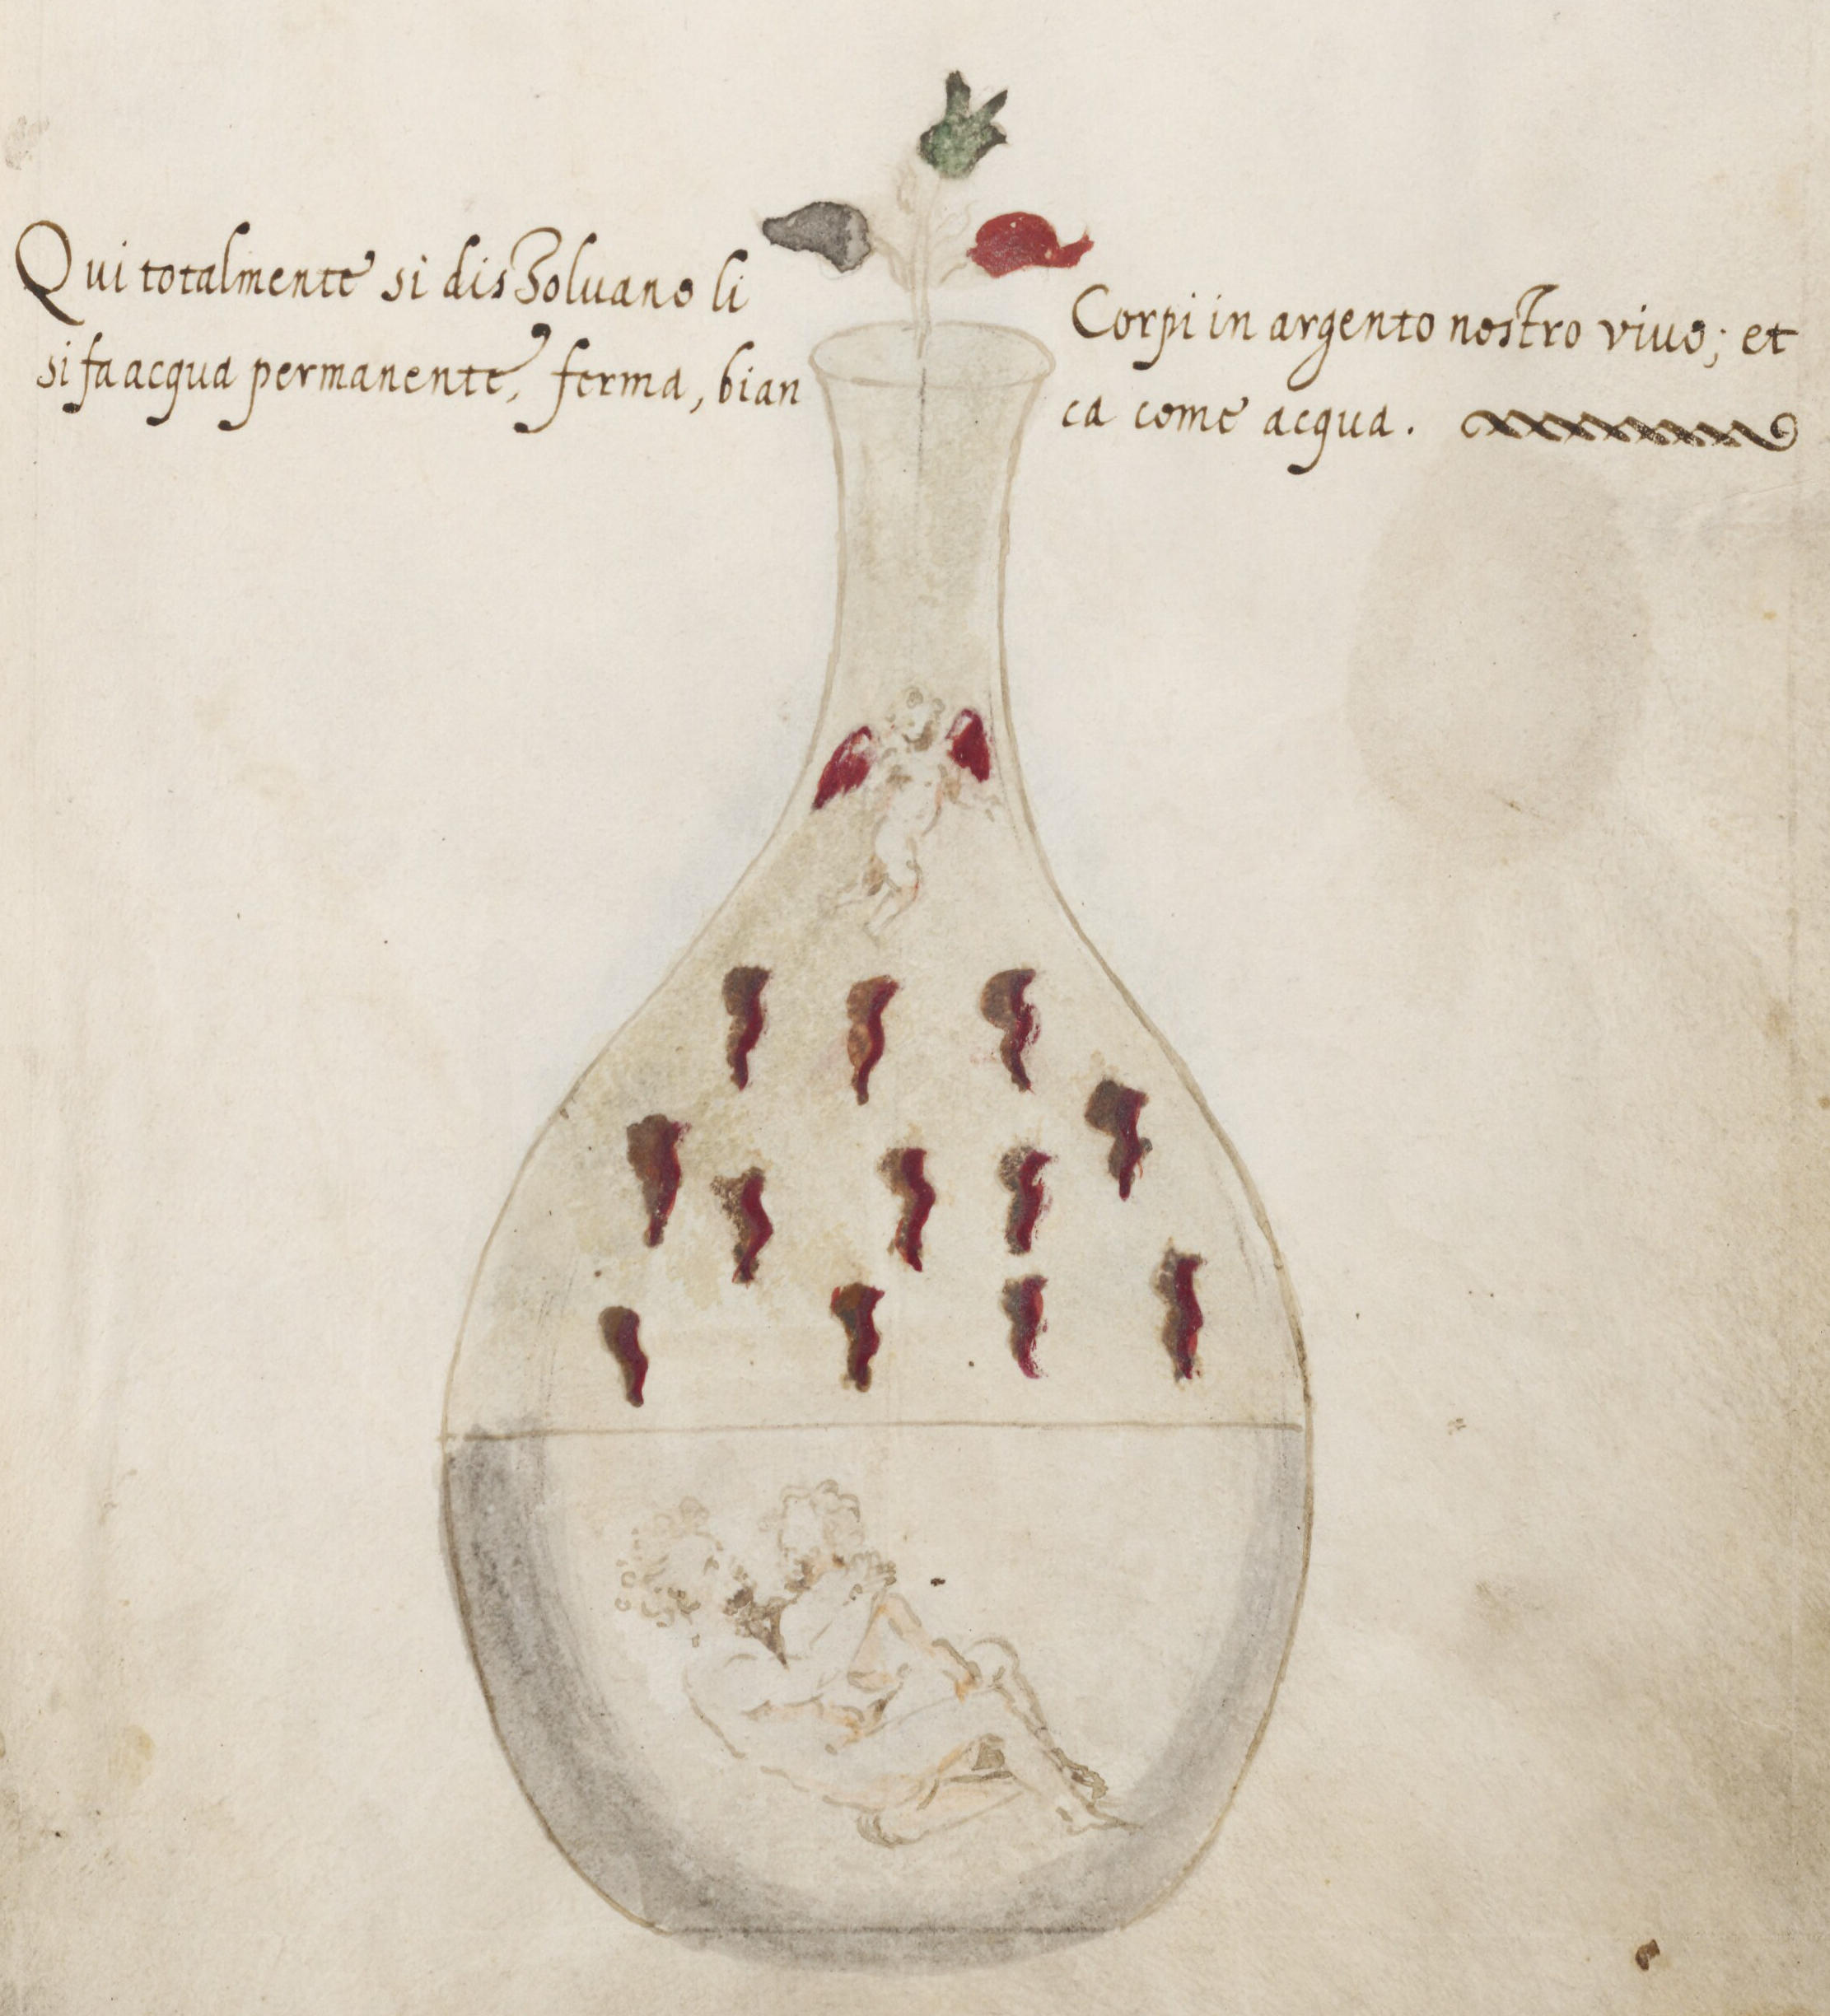 Qui totalmente si dissoluano li Corpi in argento nostro viuo; et
si fa acqua permanente, ferma, bianca come acqua.